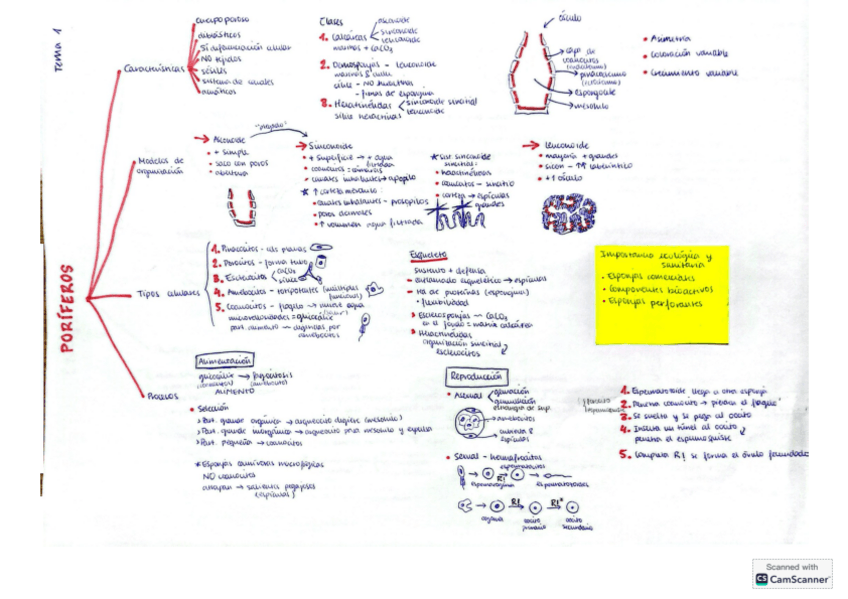 Tema 1
PORÍFEROS
Características
cuerpo poroso
diblásticos
Sí diferenciación celular
NO tejidos
sésiles
sistema de canales
acuáticos
Clases
1. Calcáreas
asconoide
siconoide
leuconoide
marinos + CaCO3
2. Demospongias - leuconoide
marinos & dulce
sílice - NO hexactinas
- fibras de espongina
3. Hexactinélidas
siconoide sincitial
leuconoide
sílice hexactinas
ósculo
capa de
coanocitos
pinacodermo
espongocele
mesohilo
• Asimetría
• Coloración variable
• Crecimiento variable
Modelos de
organización
→ Asconoide
• + simple
• saco con poros
• abertura
→ Siconoide
• + superficie → + agua
filtrada
• canales inhalantes → apopilo
• canales inhalantes - prosopilos
• poros dermales
• ↑ volumen agua filtrada
siconoide
sincitial:
• hexactinélidas
• coanocitos - sincitio
→ espículas
grandes
→ Leuconoide
• mayoría + grandes
• + 1 ósculo
Tipos celulares
1. Pinacocitos - cels planas
2. Porocitos - forma tubo
3. Esclerocitos
CaCO3
sílice
4. Amebocitos - totipotentes (múltiples
funciones)
5. Coanocitos - flagelo → mover agua
microvellosidades = glicocálix
part. alimento — digeridas por
amebocitos
Esqueleto
sustento + defensa
- entramado esquelético → espículas
- red de proteínas (espongina)
• flexibilidad
> Escleroesponjas — CaCO3
> Hexactinélidas
organización sincitial
esclerocitos
Importancia ecológica y
sanitaria
• Esponjas comerciales
• Componentes bioactivos
• Esponjas perforantes
Alimentación
glicocálix → fagocitosis
(coanocitos) (amebocitos)
ALIMENTO
• Selección
> Part. grande orgánica → arqueocito digiere (mesohilo)
> Part. grande inorgánica → arqueocito pasa mesohilo y expulsa
> Part. pequeña → coanocitos
* Esponjas carnívoras macrófagas
NO coanocitos
atrapan → salientes pegajosos
(espículas)
Reproducción
• Asexual
gemación
gemulación
amebocitos
espículas
• Sexual - hermafroditas
espermatocitos
R!
espermatogonia
espermatozoides
R1
R1*
ovogonia
ovocito
primario
ovocito
secundario
1. Espermatozoide llega a otra esponja
2. Penetra coanocito → pierden el flagelo
3. Se suelta y se pega al ovocito
4. Inserta un túnel al ovocito
penetra el espermoquiste
5. Completa R! se forma el óvulo fecundado
Scanned with
CS CamScanner